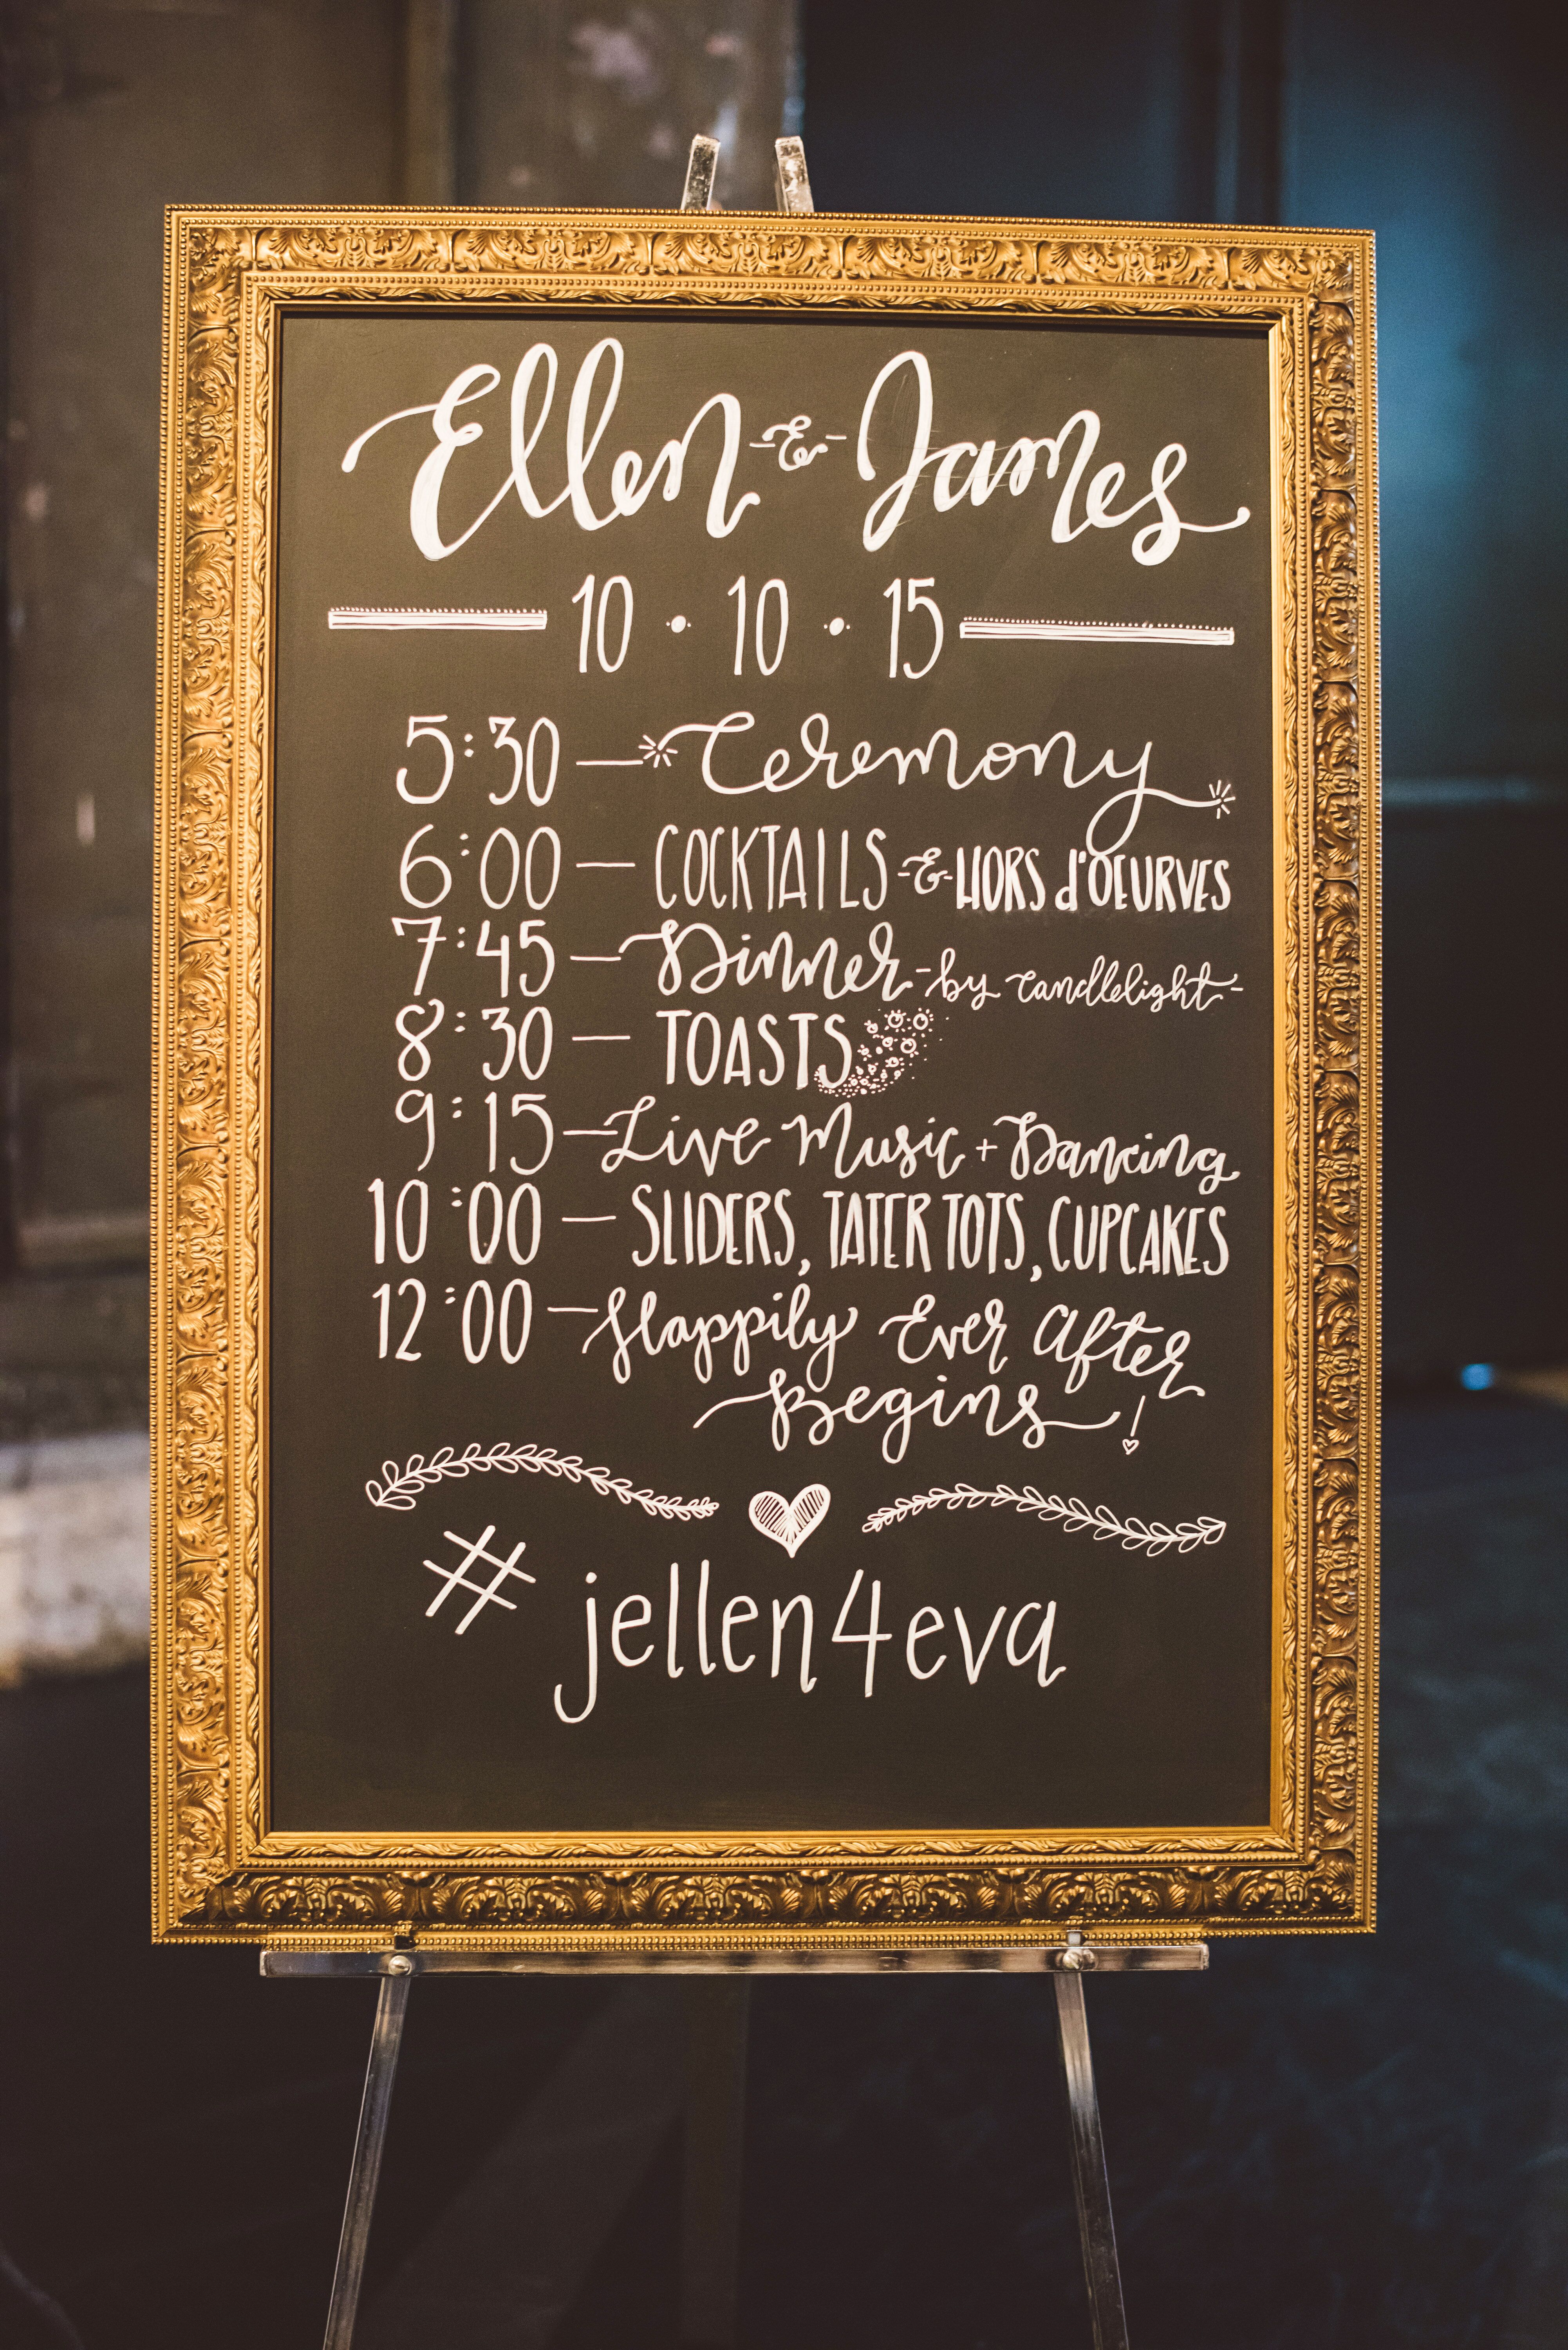 Ellen & James
10 · 10 · 15
5:30 — Ceremony
6:00 — COCKTAILS & HORS d'OEURVES
7:45 — Dinner - by candlelight -
8:30 — TOASTS
9:15 — Live Music + Dancing
10:00 — SLIDERS, TATER TOTS, CUPCAKES
12:00 — Happily Ever After
Begins!
# jellen4eva